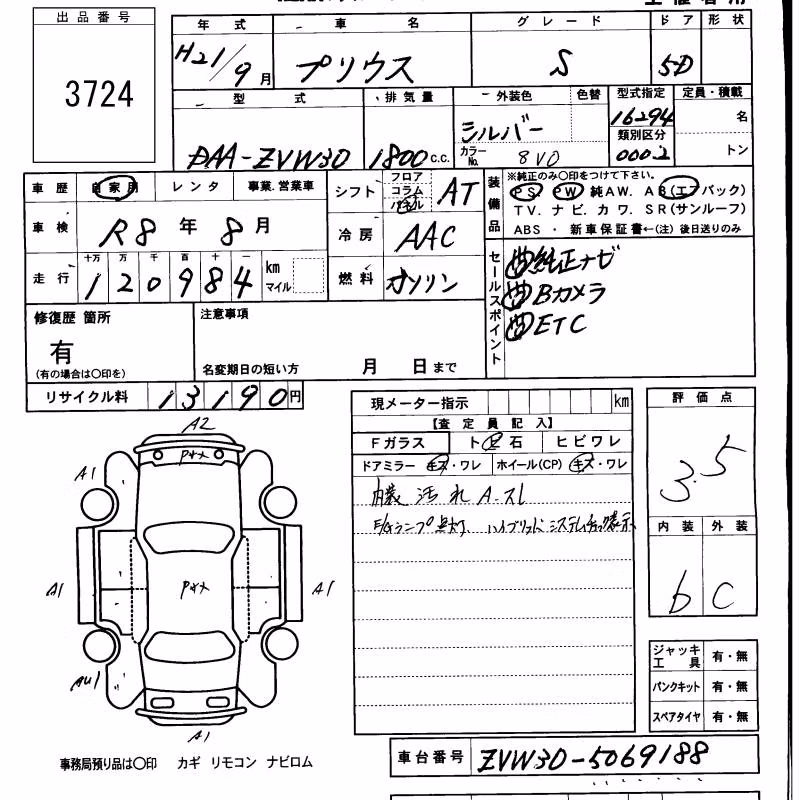 出品番号
3724
年式 車名 グレード ドア 形状
H21/9月 プリウス S 5D
型式 排気量 外装色 色替 型式指定 定員・積載
DAA-ZVW30 1800c.c. シルバー 16294 名
カラーNo. 8V0 類別区分 0002 トン
車歴 自家用 レンタ 事業.営業車
車検 R8年8月
走行 十万 万 千 百 十 一
120984 km マイル
シフト フロア コラム パネル AT
冷房 AAC
燃料 ガソリン
装備品
※純正のみ○印をつけて下さい。
PS. PW 純AW. AB(エアバック)
TV. ナビ. カワ. SR(サンルーフ)
ABS ・ 新車保証書←(注) 後日送りのみ
セールスポイント
純正ナビ
Bカメラ
ETC
修復歴 箇所
有
(有の場合は○印を)
注意事項
名変期日の短い方 月 日まで
リサイクル料 13190円
現メーター指示 km
【査定員記入】
Fガラス ト石 ヒビワレ
ドアミラー キズ・ワレ ホイール(CP) キズ・ワレ
内装汚れ A-スレ
E/Gランプ点灯. ハイブリッドシステムチェック表示
評価点
3.5
内装 外装
b C
A2
Pキズ
A1
A1
Pキズ
A1
AU1
A1
ジャッキ工具 有・無
パンクキット 有・無
スペアタイヤ 有・無
車台番号 ZVW30-5069188
事務局預り品は○印 カギ リモコン ナビロム